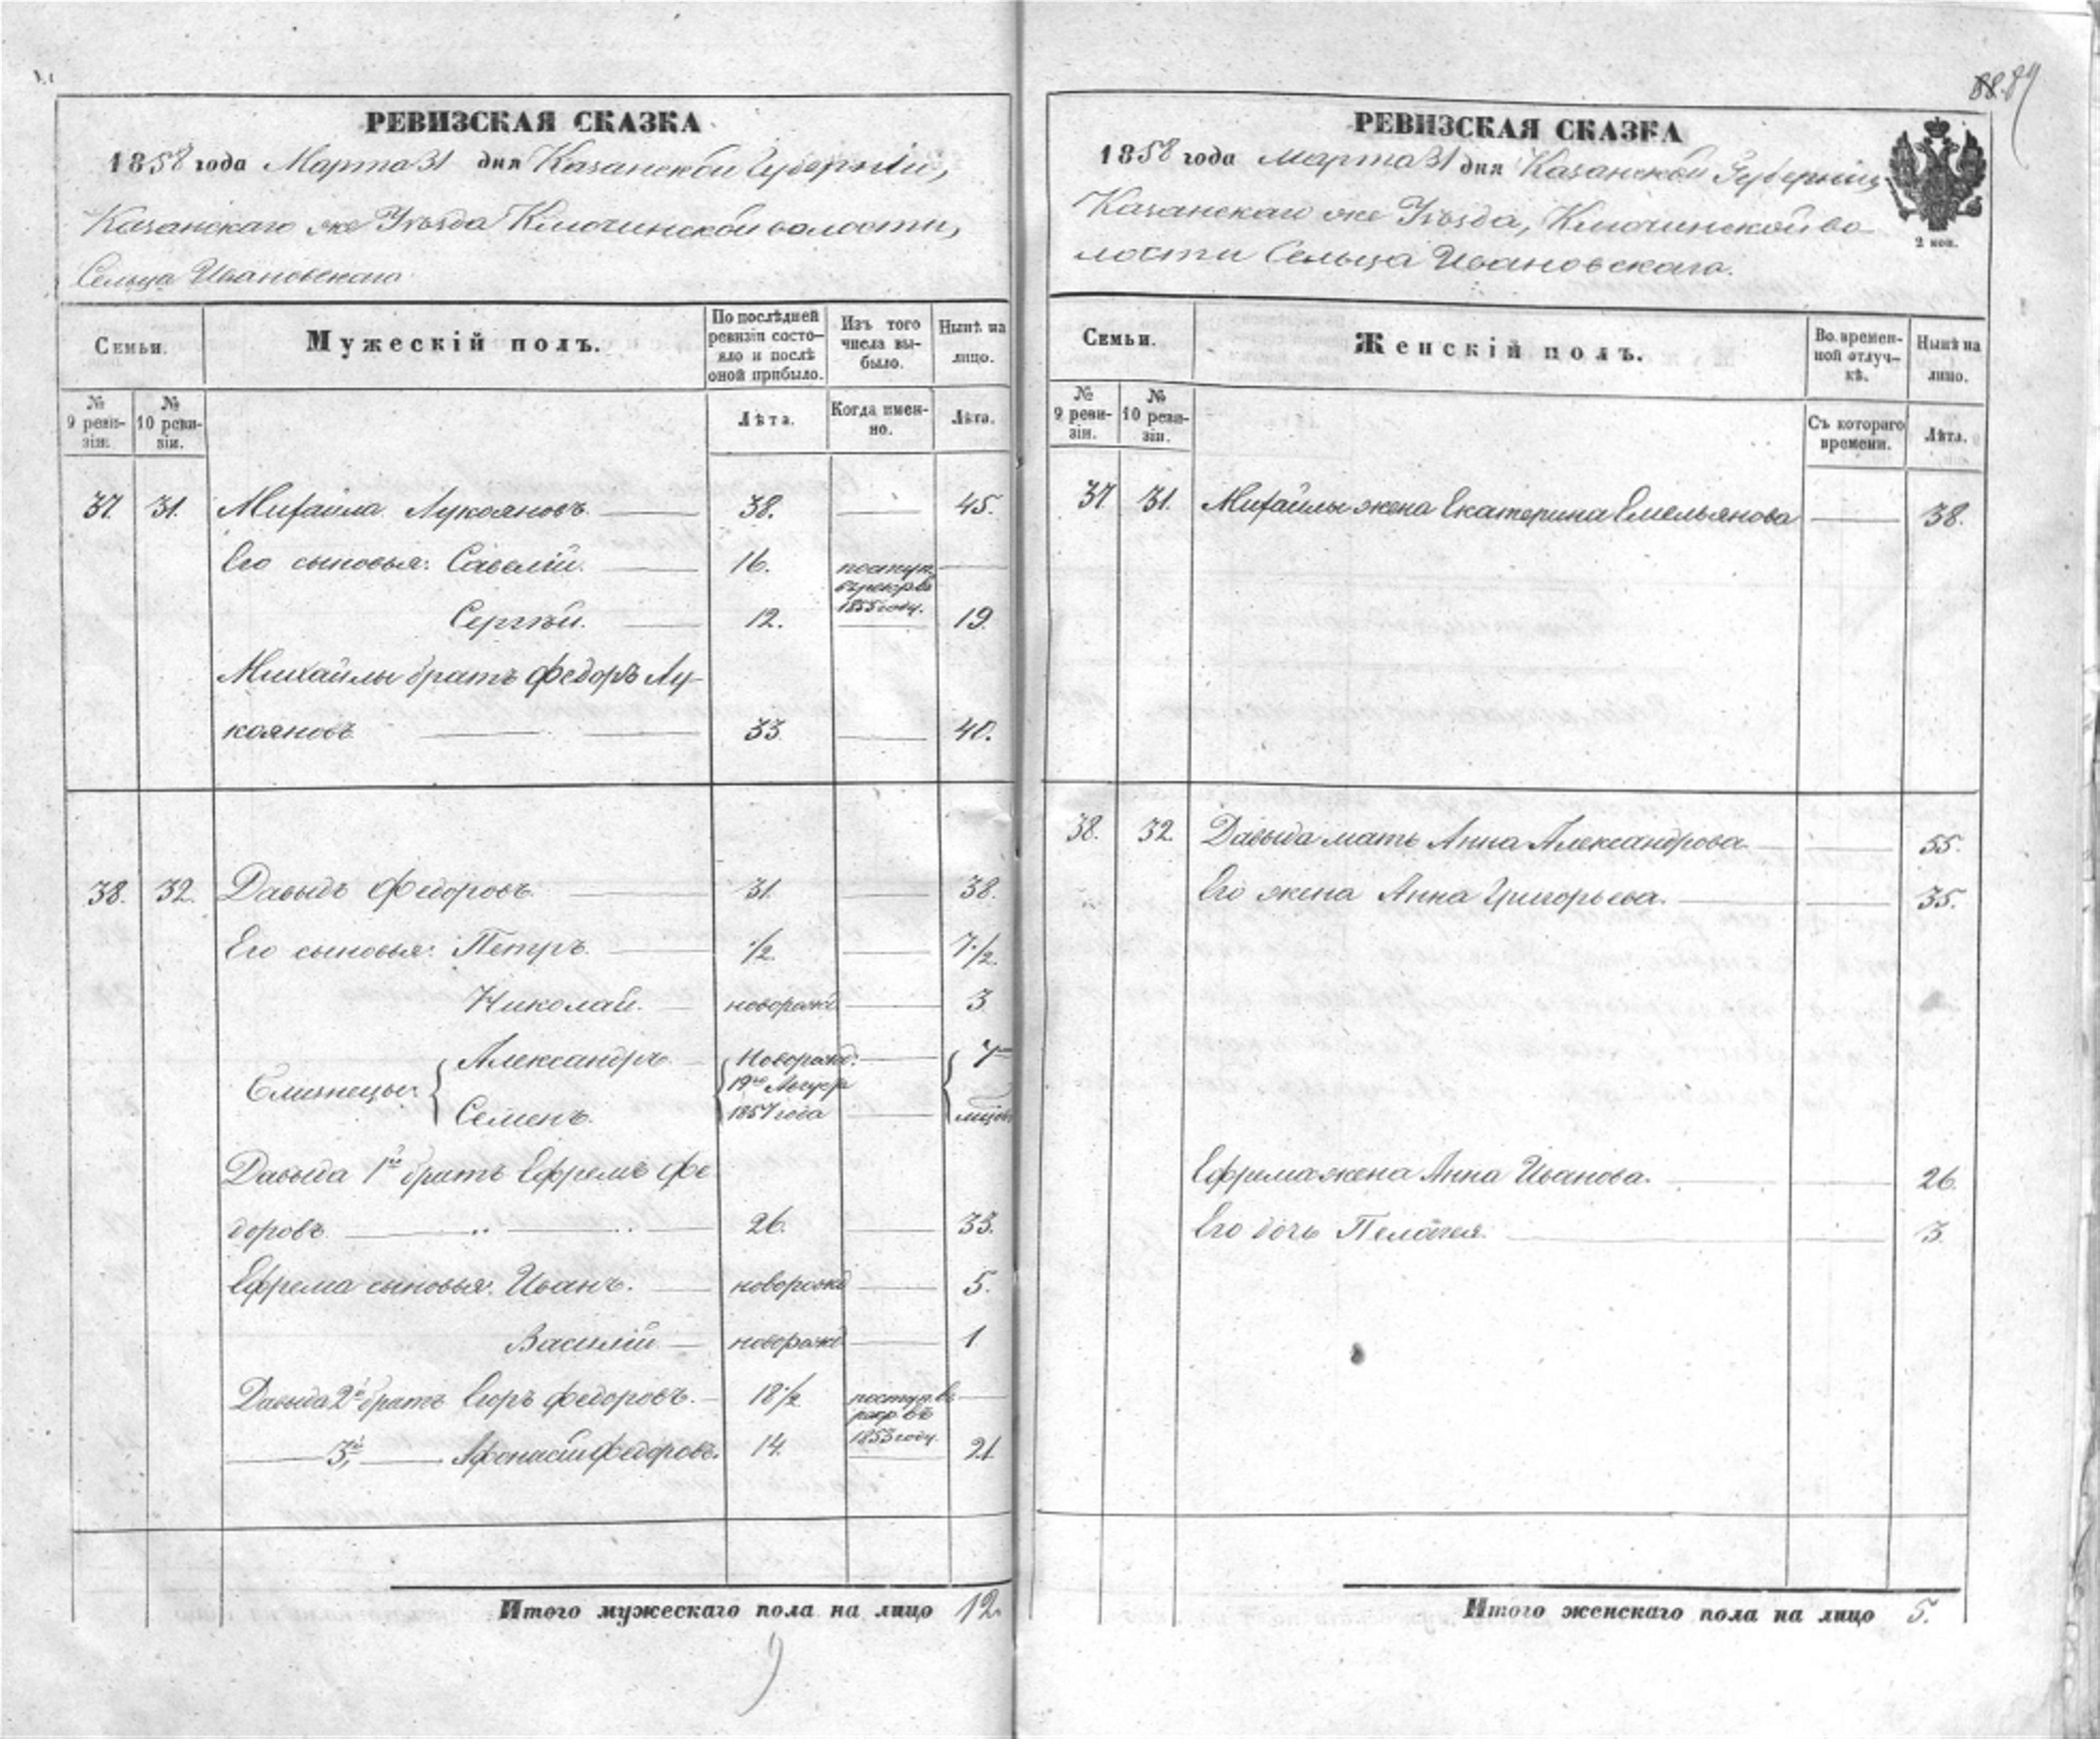 РЕВИЗСКАЯ СКАЗКА
1858 года Марта 31 дня Казанской Губерніи,
Казанскаго же Уѣзда Ключинской волости,
Сельца Ивановскаго
Семьи. Мужескій полъ. По послѣдней ревизіи состояло и послѣ оной прибыло. Изъ того числа выбыло. Нынѣ на лицо.
№ 9 ревизіи. № 10 ревизіи. Лѣта. Когда именно. Лѣта.
37. 31. Михайла Лукояновъ. 38. 45.
Его сыновья: Савелій. 16. поступ. въ рекрв 1855 году.
Сергѣй. 12. 19.
Михайлы братъ Федоръ Лу-
кояновъ 33 40.
38. 32. Давыдъ Федоровъ 31. 38.
Его сыновья: Петръ. 1/2. 7 1/2.
Николай. новорожд 3
Близнецы: { Александръ { Новорожд: { 7
19го Августа
Семенъ. 1857 года мѣсяц
Давыда 1й братъ Ефремъ Фе
доровъ 26. 33.
Ефрема сыновья: Иванъ. новорожд 5.
Василій новорожд 1
Давыда 2й братъ Егоръ Федоровъ. 18 1/2 поступ. въ рекр. въ 1853 году.
3й, Афонасій Федоровъ. 14. 21
Итого мужескаго пола на лицо 12.
88. 89
РЕВИЗСКАЯ СКАЗКА
1858 года Марта 31 дня Казанской Губерніи,
Казанскаго же Уѣзда, Ключинской во
лости Сельца Ивановскаго.
2 коп.
Семьи. Женскій полъ. Во временной отлучкѣ. Нынѣ на лицо.
№ 9 ревизіи. № 10 ревизіи. Съ котораго времени. Лѣта.
37 31. Михайлы жена Екатерина Емельянова 38.
38. 32. Давыда мать Анна Александрова 55.
Его жена Анна Григорьева. 35.
Ефрема жена Анна Иванова. 26.
Его дочь Пелагея. 3
Итого женскаго пола на лицо 5.